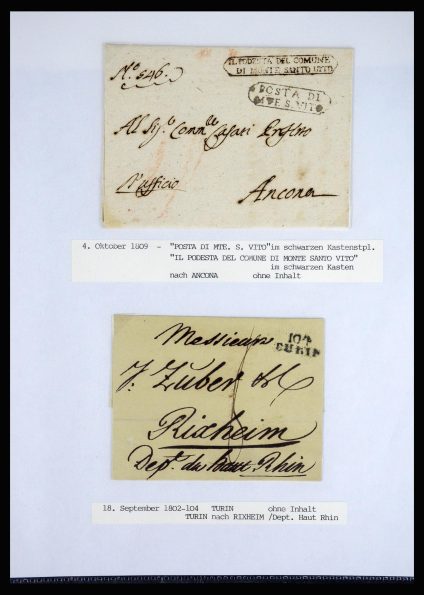 Nº 546.
IL PODESTA DEL COMUNE
DI MONTE SANTO VITO
POSTA DI
MTE S. VITO
Al Sig.
L'ufficio
Ancona
4. Oktober 1809 - "POSTA DI MTE. S. VITO"im schwarzen Kastenstpl.
"IL PODESTA DEL COMUNE DI MONTE SANTO VITO"
im schwarzen Kasten
nach ANCONA ohne Inhalt
Messieurs
104
TURIN
J. Zuber & C
Rixheim
Dept. du haut Rhin
18. September 1802-104 TURIN ohne Inhalt
TURIN nach RIXHEIM /Dept. Haut Rhin